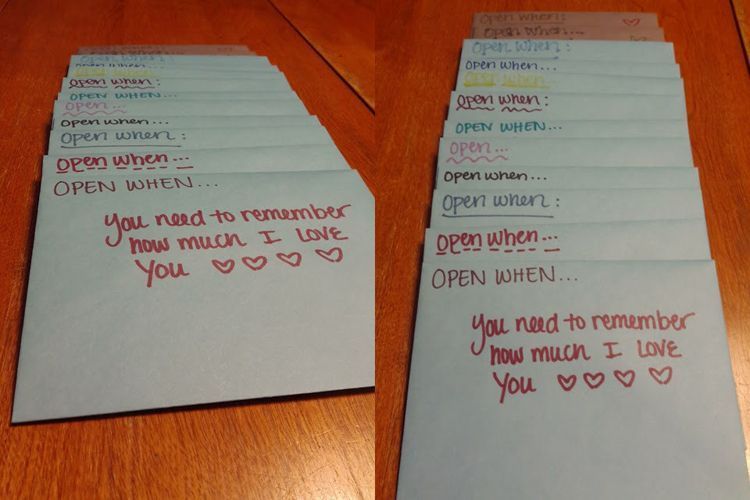 Open when :
Open when...
Open when:
OPEN WHEN...
Open ...
Open when...
Open when :
Open when...
OPEN WHEN...
You need to remember
how much I LOVE
You ♡ ♡ ♡ ♡
Open when: ♡
Open when...
Open when :
Open when...
Open when...
Open when:
OPEN WHEN...
Open ...
Open when...
Open when :
Open when...
OPEN WHEN...
You need to remember
how much I LOVE
You ♡ ♡ ♡ ♡